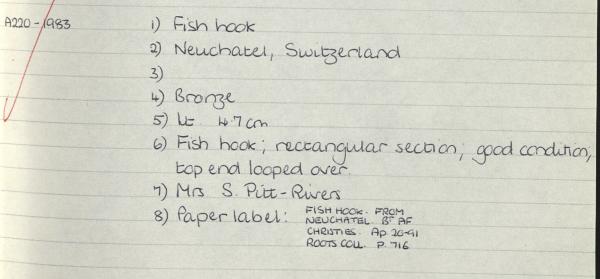 A220-1983
1) Fish hook
2) Neuchatel, Switzerland
3)
4) Bronze
5) Lt 4.7cm
6) Fish hook; rectangular section; good condition;
top end looped over.
7) Mrs S. Pitt-Rivers
8) Paper label: FISH HOOK. FROM
NEUCHATEL. BT AF
CHRISTIES. Ap 20-91
ROOTS COLL. P. 716